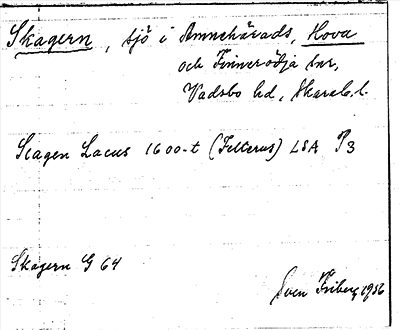 Skagern, sjö i Amnehärads, Hova
och Finnerödja snr,
Vadsbo hd, Skarab. l.
Scagen Lacus 1600-t (Fellerus) LSA P3
Skagern G 64
Sven Friberg 1956